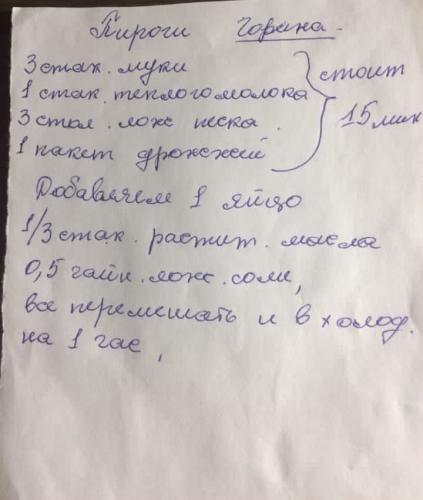 Пироги Горана.
3 стак. муки
1 стак. теплого молока
3 стол. лож песка.
1 пакет дрожжей
стоит
15 мин
Добавляем 1 яйцо
1/3 стак. растит. масла
0,5 чайн. лож. соли,
все перемешать и в холод.
на 1 час,